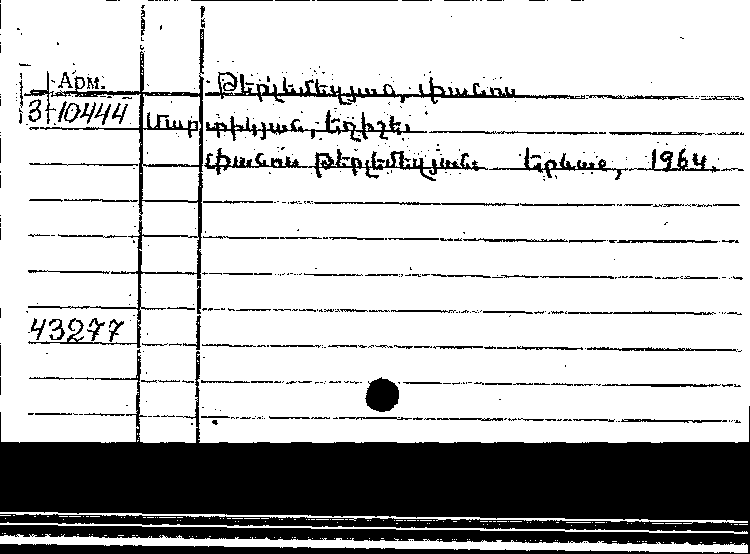 Арм.
Թերլեմեզյան, Փանոս
3-10444
Մարտիկյան, Եղիշե.
Փանոս Թերլեմեզյան. Երևան, 1964.
43277